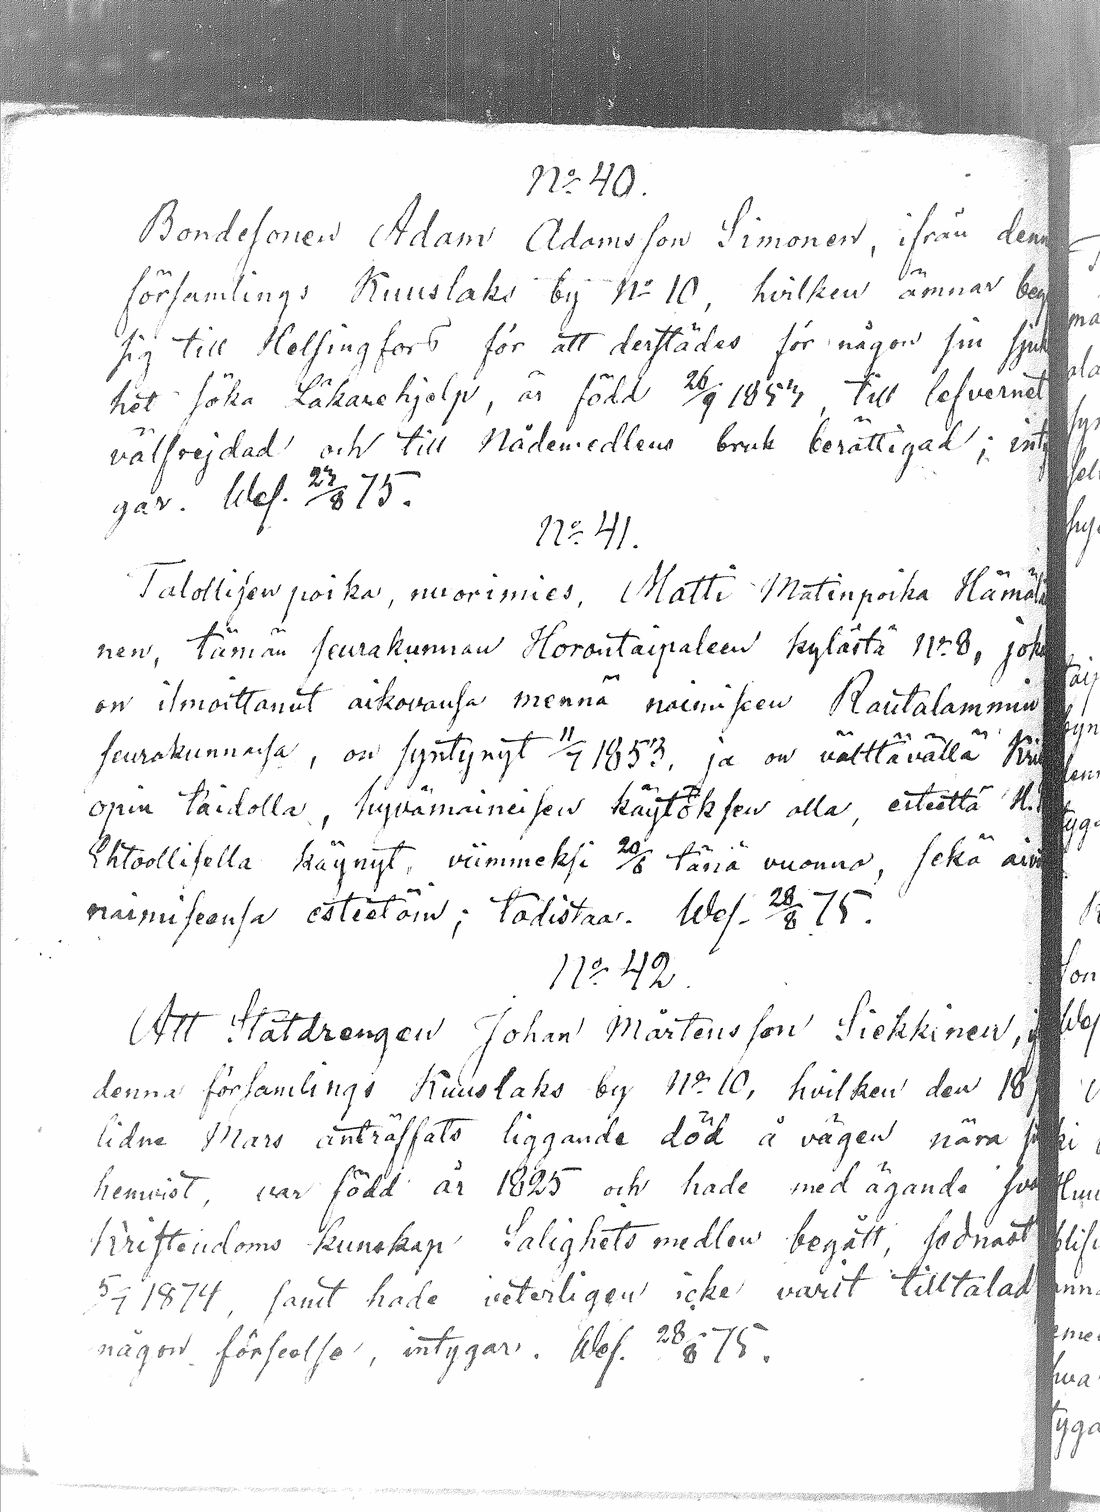 No 40.
Bondesonen Adam Adamsson Simonen, ifrån denn
församlings Kuuslaks by No 10, hvilken ämnar beg
sig till Helsingfors för att derstädes för någon sin sjuk
het söka Läkarehjelp, är född 26/9 1857, till lefvernet
välfrejdad och till Nådemedlens bruk berättigad; inty
gar. Wes. 27/8 75.
No 41.
Talollisen poika, nuorimies, Matti Matinpoika Hämäläi
nen, tämän seurakunnan Horontaipaleen kylästä No 8, joka
on ilmoittanut aikovansa mennä naimiseen Rautalammin
seurakunnassa, on syntynyt 11/7 1853, ja on välttävällä Kris
opin taidolla, hyvämaineisen käytöksen alla, esteettä H.
Ehtoollisella käynyt, viimmeksi 20/6 tänä vuonna, sekä aivi
naimiseensa esteetöin; todistaa. Wes. 28/8 75.
No 42.
Att Statdrengen Johan Mårtensson Siekkinen, i
denna församlings Kuuslaks by No 10, hvilken den 18
lidne Mars anträffats liggande död å vägen nära si
hemvist, var född år 1825 och hade med ägande sva
Kristendoms kunskap Salighets medlen begått, sednast
5/7 1874, samt hade veterligen icke varit tilltalad
någon förseelse, intygar. Wes. 28/8 75.